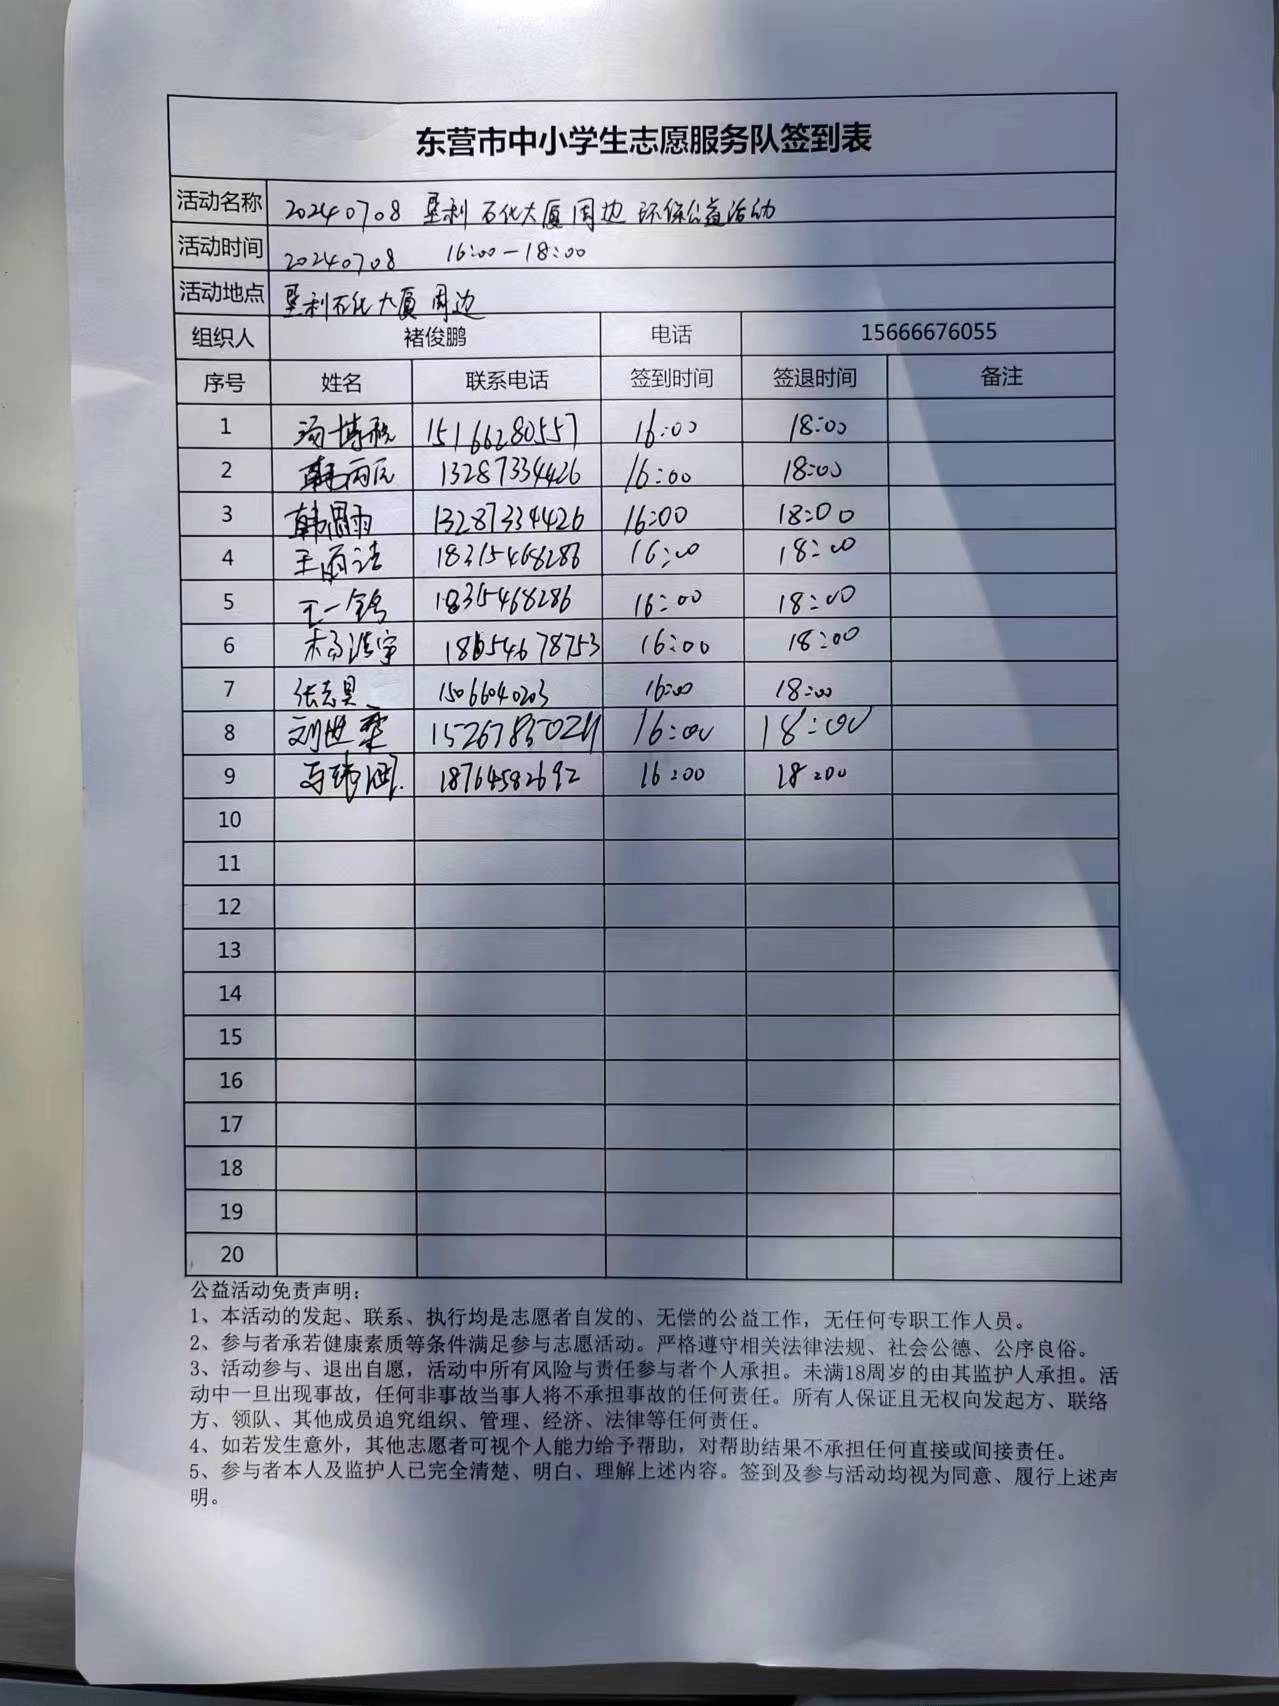 东营市中小学生志愿服务队签到表
活动名称 20240708 垦利石化大厦周边环保公益活动
活动时间 20240708 16:00-18:00
活动地点 垦利石化大厦周边
组织人 褚俊鹏 电话 15666676055
序号 姓名 联系电话 签到时间 签退时间 备注
1 汤博 15166280557 16:00 18:00
2 韩丙辰 13287334426 16:00 18:00
3 韩雨 13287334426 16:00 18:00
4 王浩 18315468286 16:00 18:00
5 王一铭 1835468286 16:00 18:00
6 杨浩宇 18654678753 16:00 18:00
7 张志昊 15066040203 16:00 18:00
8 刘世 16:00 18:00
9 马 18764582692 16:00 18:00
10
11
12
13
14
15
16
17
18
19
20
公益活动免责声明：
1、本活动的发起、联系、执行均是志愿者自发的、无偿的公益工作，无任何专职工作人员。
2、参与者承若健康素质等条件满足参与志愿活动。严格遵守相关法律法规、社会公德、公序良俗。
3、活动参与、退出自愿，活动中所有风险与责任参与者个人承担。未满18周岁的由其监护人承担。活
动中一旦出现事故，任何非事故当事人将不承担事故的任何责任。所有人保证且无权向发起方、联络
方、领队、其他成员追究组织、管理、经济、法律等任何责任。
4、如若发生意外，其他志愿者可视个人能力给予帮助，对帮助结果不承担任何直接或间接责任。
5、参与者本人及监护人已完全清楚、明白、理解上述内容。签到及参与活动均视为同意、履行上述声
明。